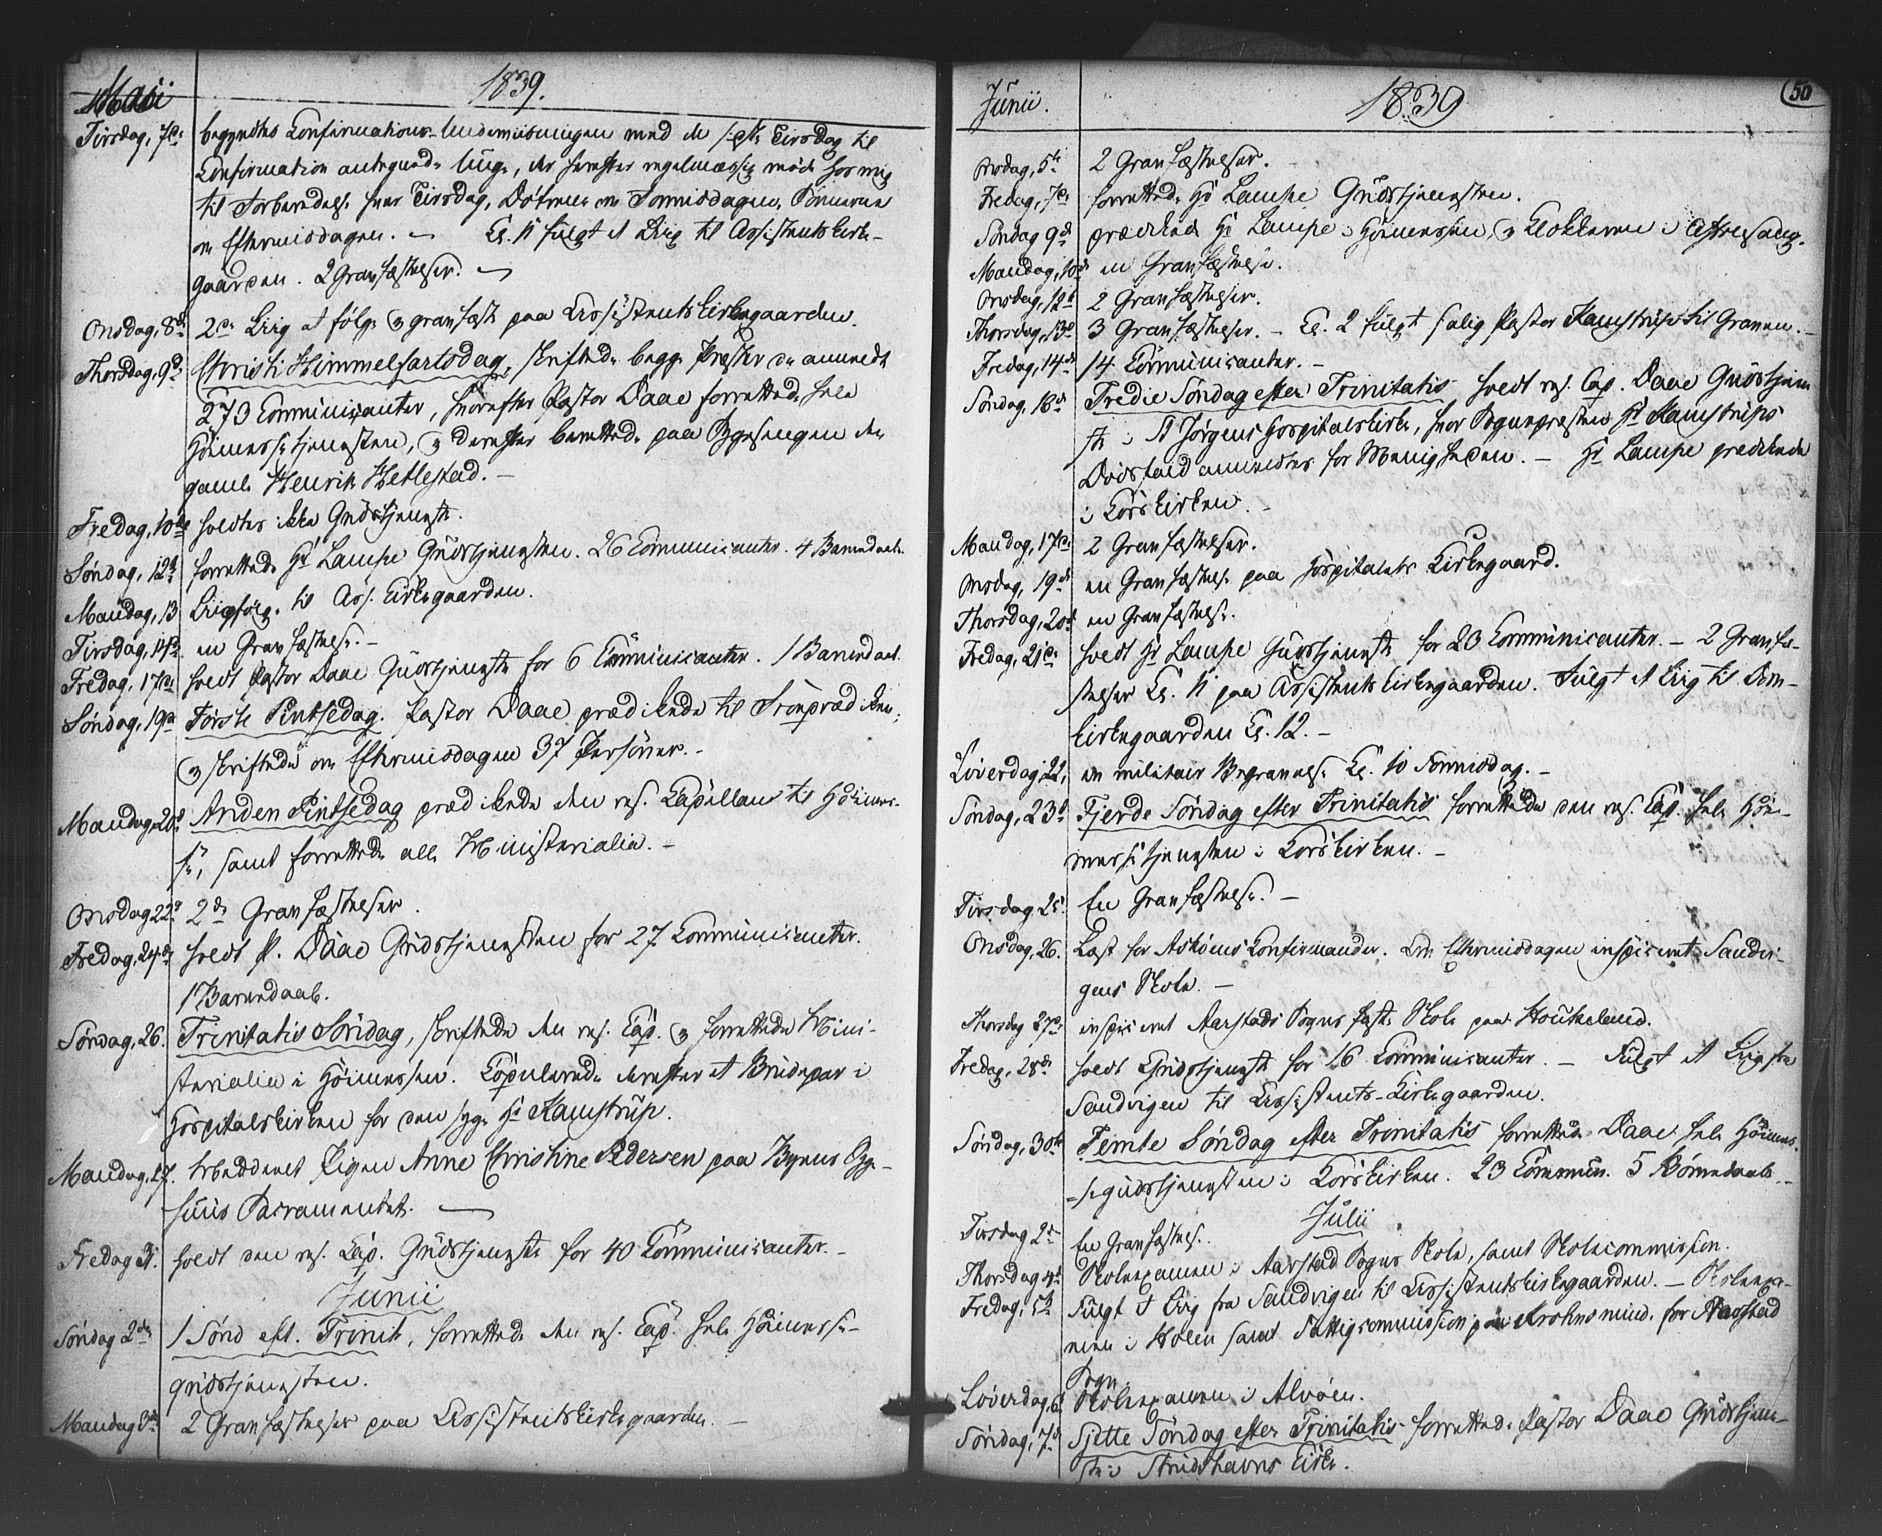 Maii
1839.
Tirsdag, 7de begyndtes Confirmations-Underviisningen med de sidste Tirsdag til
Confirmation antegnede Unge, der herefter regelmæssig møde hos mig
til Forberedelse hver Tirsdag, Døtrene om Formiddagen, Sønnerne
om Eftermiddagen. — Kl. 11 fulgt et Liig til Assistents Kirke-
gaarden. 2 Granfæstelser. —
Onsdag, 8de 2de Liig at følge og granfæste paa Assistents Kirkegaarden.
Thorsdag, 9de Christi Himmelfartsdag, skriftede begge Præster de anmeldte
273 Communicanter, hvorefter Pastor Daae forrettede hele
Høimessetjenesten, og derefter berettede paa Sygesengen den
gamle Henrik Hetlestad. —
Fredag, 10de holdtes ikke Gudstjeneste.
Søndag, 12te forrettede Hr Lampe Gudstjenesten. 26 Communicanter. 4 Barnedaab.
Mandag, 13 Liigfølge til Ass. Kirkegaarden.
Tirsdag, 14de en Granfæstelse. —
Fredag, 17de holdt Pastor Daae Gudstjeneste for 6 Communicanter. 1 Barnedaab.
Søndag, 19de Første Pintsedag. Pastor Daae prædikede til Froprædiken,
og skriftede om Eftermiddagen 37 Personer. —
Mandag, 20de Anden Pintsedag prædikede den res. Capellan til Høimes-
se, samt forrettede alle Ministerialia. —
Onsdag 22de 2de Granfæstelser.
Fredag, 24de holdt P. Daae Gudstjenesten for 27 Communicanter.
1 Barnedaab.
Søndag, 26. Trinitatis Søndag, skriftede den res. Cap. og forrettede Mini-
sterialia i Høimessen. Copulerede derefter et Brudepar i
Hospitalskirken for den syge Hr Kamstrup.
Mandag, 27. bredderet Pigen Anne Christine Pedersen paa Byens Syge-
huus Sacramentet. —
Fredag 31. holdt den res. Cap. Gudstjeneste for 40 Communicanter. —
Junii
Søndag 2den 1 Sønd. eft. Trinit., forrettede den res. Cap. hele Høimesse-
gudstjenesten.
Mandag 3de 2 Granfæstelser paa Assistents Kirkegaarden. —
50
Junii.
1839
Onsdag, 5te 2 Granfæstelser.
Fredag, 7de forrettede Hr Lampe Gudstjenesten.
Søndag 9de prædikede Hr Lampe i Høimessen, og Klokkeren i Aftensang.
Mandag, 10de en Granfæstelse.
Onsdag, 12te 2 Granfæstelser.
Thorsdag, 13de 3 Granfæstelser. — Kl. 2 fulgt salig Pastor Kamstrup til Graven. —
Fredag, 14de 14 Communicanter. —
Søndag, 16de Tredie Søndag efter Trinitatis holdt res. Cap. Daae Gudstjene-
ste i St Jørgens Hospitals Kirke, hvor Sognepræsten Hr Kamstrups
Dødsfald anmeldtes for Menigheden. — Hr Lampe prædikede
i Korskirken. —
Mandag, 17de 2 Granfæstelser.
Onsdag, 19de en Granfæstelse paa Hospitalets Kirkegaard.
Thorsdag, 20de en Granfæstelse.
Fredag, 21de holdt Hr Lampe Gudstjeneste for 23 Communicanter. — 2 Granfæ-
stelser Kl. 11 paa Assistents Kirkegaarden. Fulgt et Liig til Dom-
kirkegaarden Kl. 12. —
Løverdag 22, en militair Begravelse Kl. 10 Formiddag. —
Søndag, 23de Fjerde Søndag efter Trinitatis forrettede den res. Cap. hele Høi-
messetjenesten i Korskirken. —
Tirsdag 25. En Granfæstelse. —
Onsdag, 26. Læst for Askøens Confirmander. Om Eftermiddagen inspiceret Sandvi-
gens Skole. —
Thorsdag 27de inspiceret Aarstads Sogns faste Skole paa Houkeland.
Fredag, 28de holdt Gudstjeneste for 16 Communicanter. — Fulgt et Liig fra
Sandvigen til Assistents-Kirkegaarden.
Søndag, 30te Femte Søndag efter Trinitatis forrettede Daae hele Høimes-
segudstjenesten i Korskirken. 23 Commun. 5 Børnedaab. —
Julii
Tirsdag 2den En Granfæstelse.
Thorsdag 4de Skolexamen i Aarstad Sogns Skole, samt Skolecommission.
Fredag, 5te Fulgt et Liig fra Sandvigen til Assistents Kirkegaarden. — Skolexa-
men i Holen samt Fattigcommission paa Krohnsminde for Aarstad
Sogn.
Løverdag, 6. Skolexamen i Alvøen.
Søndag, 7de Sjette Søndag efter Trinitatis forrettede Pastor Daae Gudstjene-
ste i Strudshavns Kirke.